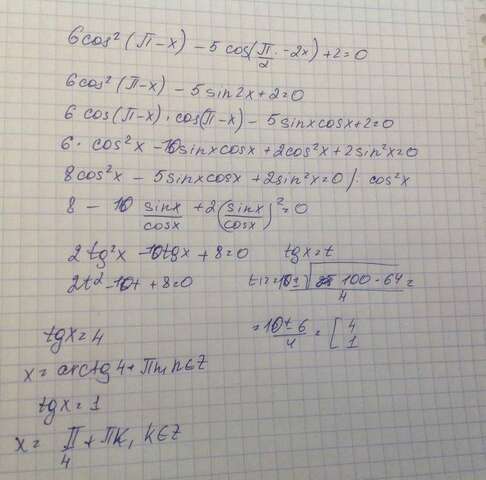 6cos²(π-x) - 5cos(π/2 - 2x) + 2 = 0
6cos²(π-x) - 5sin2x + 2 = 0
6 cos(π-x) · cos(π-x) - 5sinxcosx + 2 = 0
6 · cos²x - 10sinxcosx + 2cos²x + 2sin²x = 0
8cos²x - 5sinxcosx + 2sin²x = 0 /: cos²x
8 - 10 sinx/cosx + 2(sinx/cosx)² = 0
2tg²x - 10tgx + 8 = 0 tgx = t
2t² - 10t + 8 = 0 t₁,₂ = 10 ± √100-64 / 4 =
= 10 ± 6 / 4 = [4 1
tgx = 4
x = arctg4 + πn, n∈Z
tgx = 1
x = π/4 + πk, k∈Z